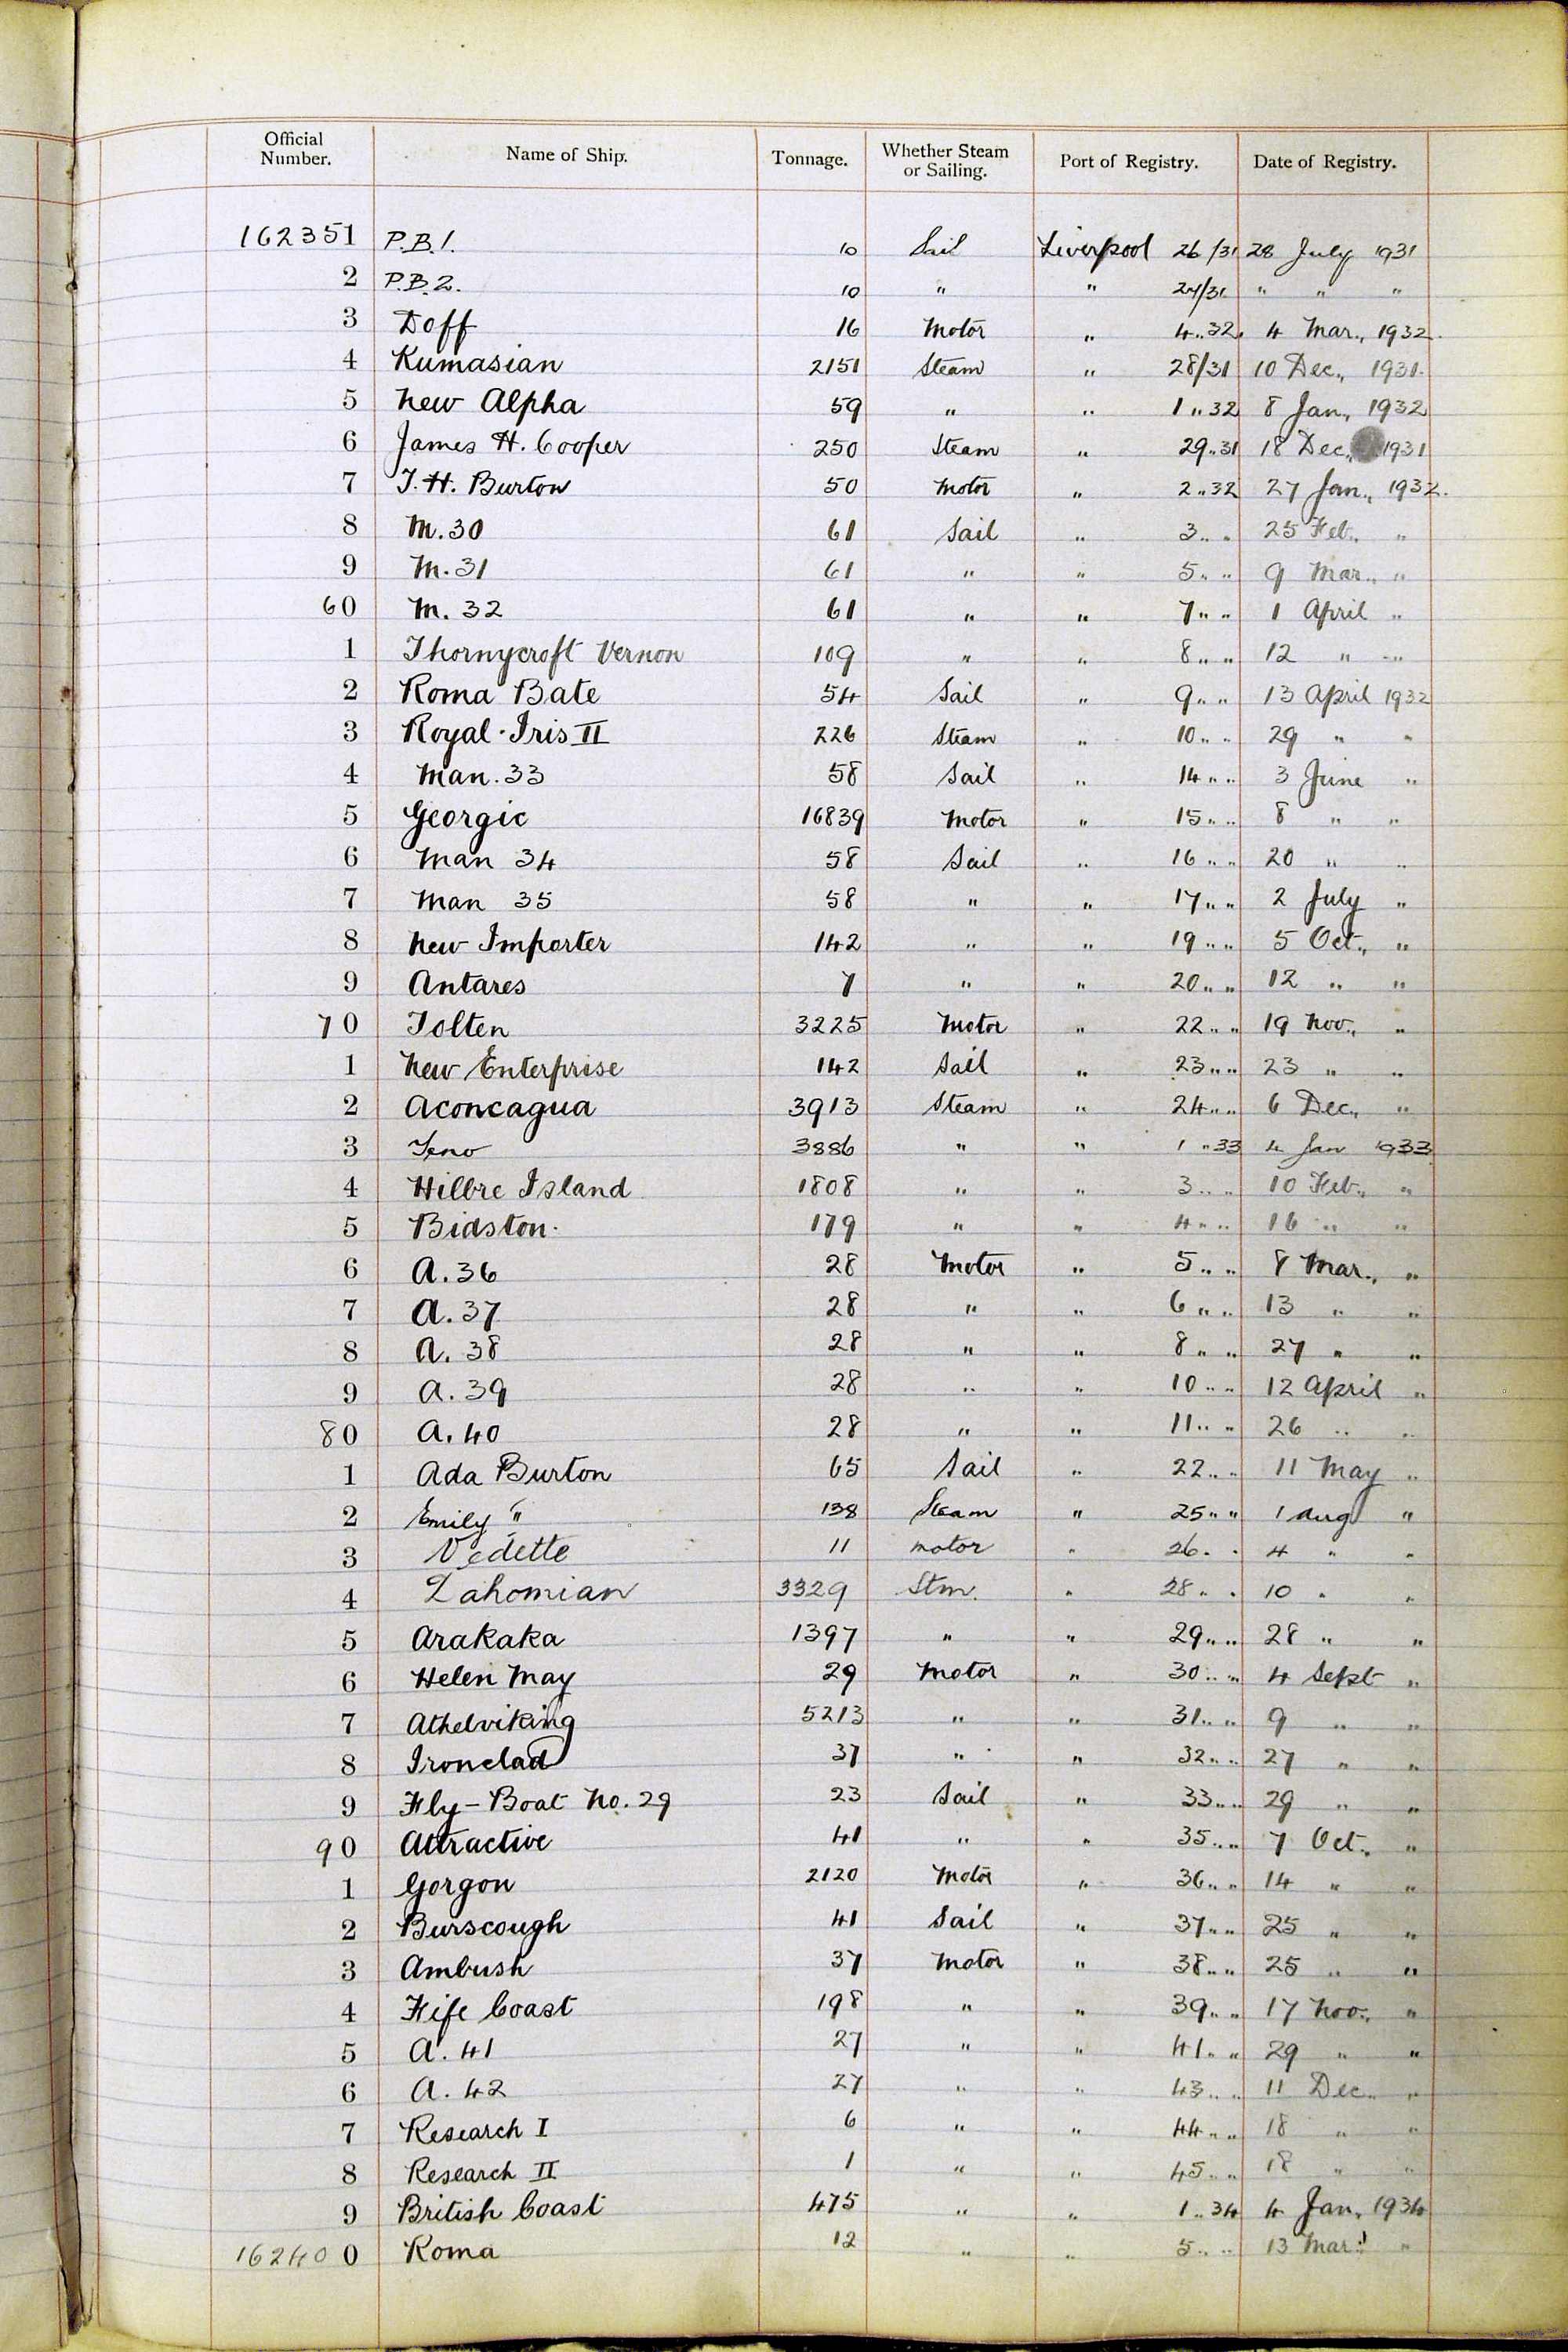 Official Number. Name of Ship. Tonnage. Whether Steam or Sailing. Port of Registry. Date of Registry.
162351 P.B.1. 10 Sail Liverpool 26/31 28 July 1931
2 P.B.2. 10 " " 27/31 " " "
3 Doff 16 Motor " 4..32. 4 Mar., 1932.
4 Kumasian 2151 Steam " 28/31 10 Dec., 1931.
5 New Alpha 59 " " 1..32 8 Jan., 1932
6 James H. Cooper 250 Steam " 29..31 18 Dec., 1931
7 J.H. Burton 50 Motor " 2..32 27 Jan., 1932.
8 M.30 61 Sail " 3 " " 25 Feb., "
9 M.31 61 " " 5 " " 9 Mar., "
60 M.32 61 " " 7 " " 1 April "
1 Thornycroft Vernon 109 " " 8 " " 12 " "
2 Roma Bate 54 Sail " 9 " " 13 April 1932
3 Royal Iris II 226 Steam " 10 " " 29 " "
4 Man.33 58 Sail " 14 " " 3 June "
5 Georgic 16839 Motor " 15 " " 8 " "
6 Man 34 58 Sail " 16 " " 20 " "
7 Man 35 58 " " 17 " " 2 July "
8 New Importer 142 " " 19 " " 5 Oct., "
9 Antares 7 " " 20 " " 12 " "
70 Tolten 3225 Motor " 22 " " 19 Nov., "
1 New Enterprise 142 Sail " 23 " " 23 " "
2 Aconcagua 3913 Steam " 24 " " 6 Dec., "
3 Teno 3886 " " 1 " 33 4 Jan 1933
4 Hilbre Island 1808 " " 3 " " 10 Feb., "
5 Bidston. 179 " " 4 " " 16 " "
6 A.36 28 Motor " 5 " " 8 Mar., "
7 A.37 28 " " 6 " " 13 " "
8 A.38 28 " " 8 " " 27 " "
9 A.39 28 " " 10 " " 12 April "
80 A.40 28 " " 11 " " 26 " "
1 Ada Burton 65 Sail " 22 " " 11 May "
2 Emily " 138 Steam " 25 " " 1 Aug "
3 Vedette 11 motor " 26 " " 4 " "
4 Lahomian 3329 Stm. " 28 " " 10 " "
5 Arakaka 1397 " " 29 " " 28 " "
6 Helen May 29 Motor " 30 " " 4 Sept "
7 Athelviking 5213 " " 31 " " 9 " "
8 Ironclad 37 " " 32 " " 27 " "
9 Fly-Boat No.29 23 Sail " 33 " " 29 " "
90 Attractive 41 " " 35 " " 7 Oct., "
1 Gorgon 2120 Motor " 36 " " 14 " "
2 Burscough 41 Sail " 37 " " 25 " "
3 Ambush 37 Motor " 38 " " 25 " "
4 Fife Coast 198 " " 39 " " 17 Nov., "
5 A.41 27 " " 41 " " 29 " "
6 A.42 27 " " 43 " " 11 Dec. "
7 Research I 6 " " 44 " " 18 " "
8 Research II 1 " " 45 " " 18 " "
9 British Coast 475 " " 1..34 4 Jan, 1934
162400 Roma 12 " " 5 " " 13 Mar. "